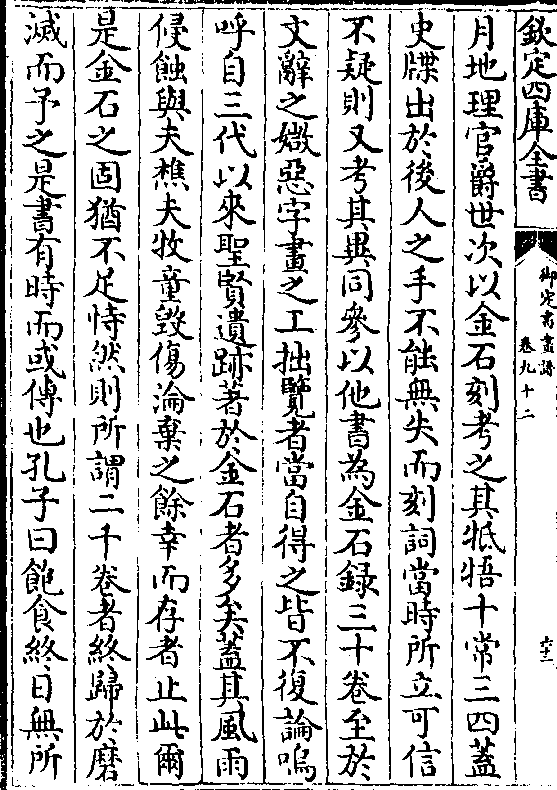 欽定四庫全書
御定書畫譜
卷九十二
月地理官爵世次以金石刻考之其牴牾十常三四蓋
史牒出於後人之手不能無失而刻詞當時所立可信
不疑則又考其異同參以他書為金石錄三十卷至於
文辭之媺惡字畫之工拙覽者當自得之皆不復論嗚
呼自三代以來聖賢遺跡著於金石者多矣蓋其風雨
侵蝕與夫樵夫牧童毀傷淪棄之餘幸而存者止此爾
是金石之固猶不足恃然則所謂二千卷者終歸於磨
滅而予之是書有時而或傳也孔子曰飽食終日無所